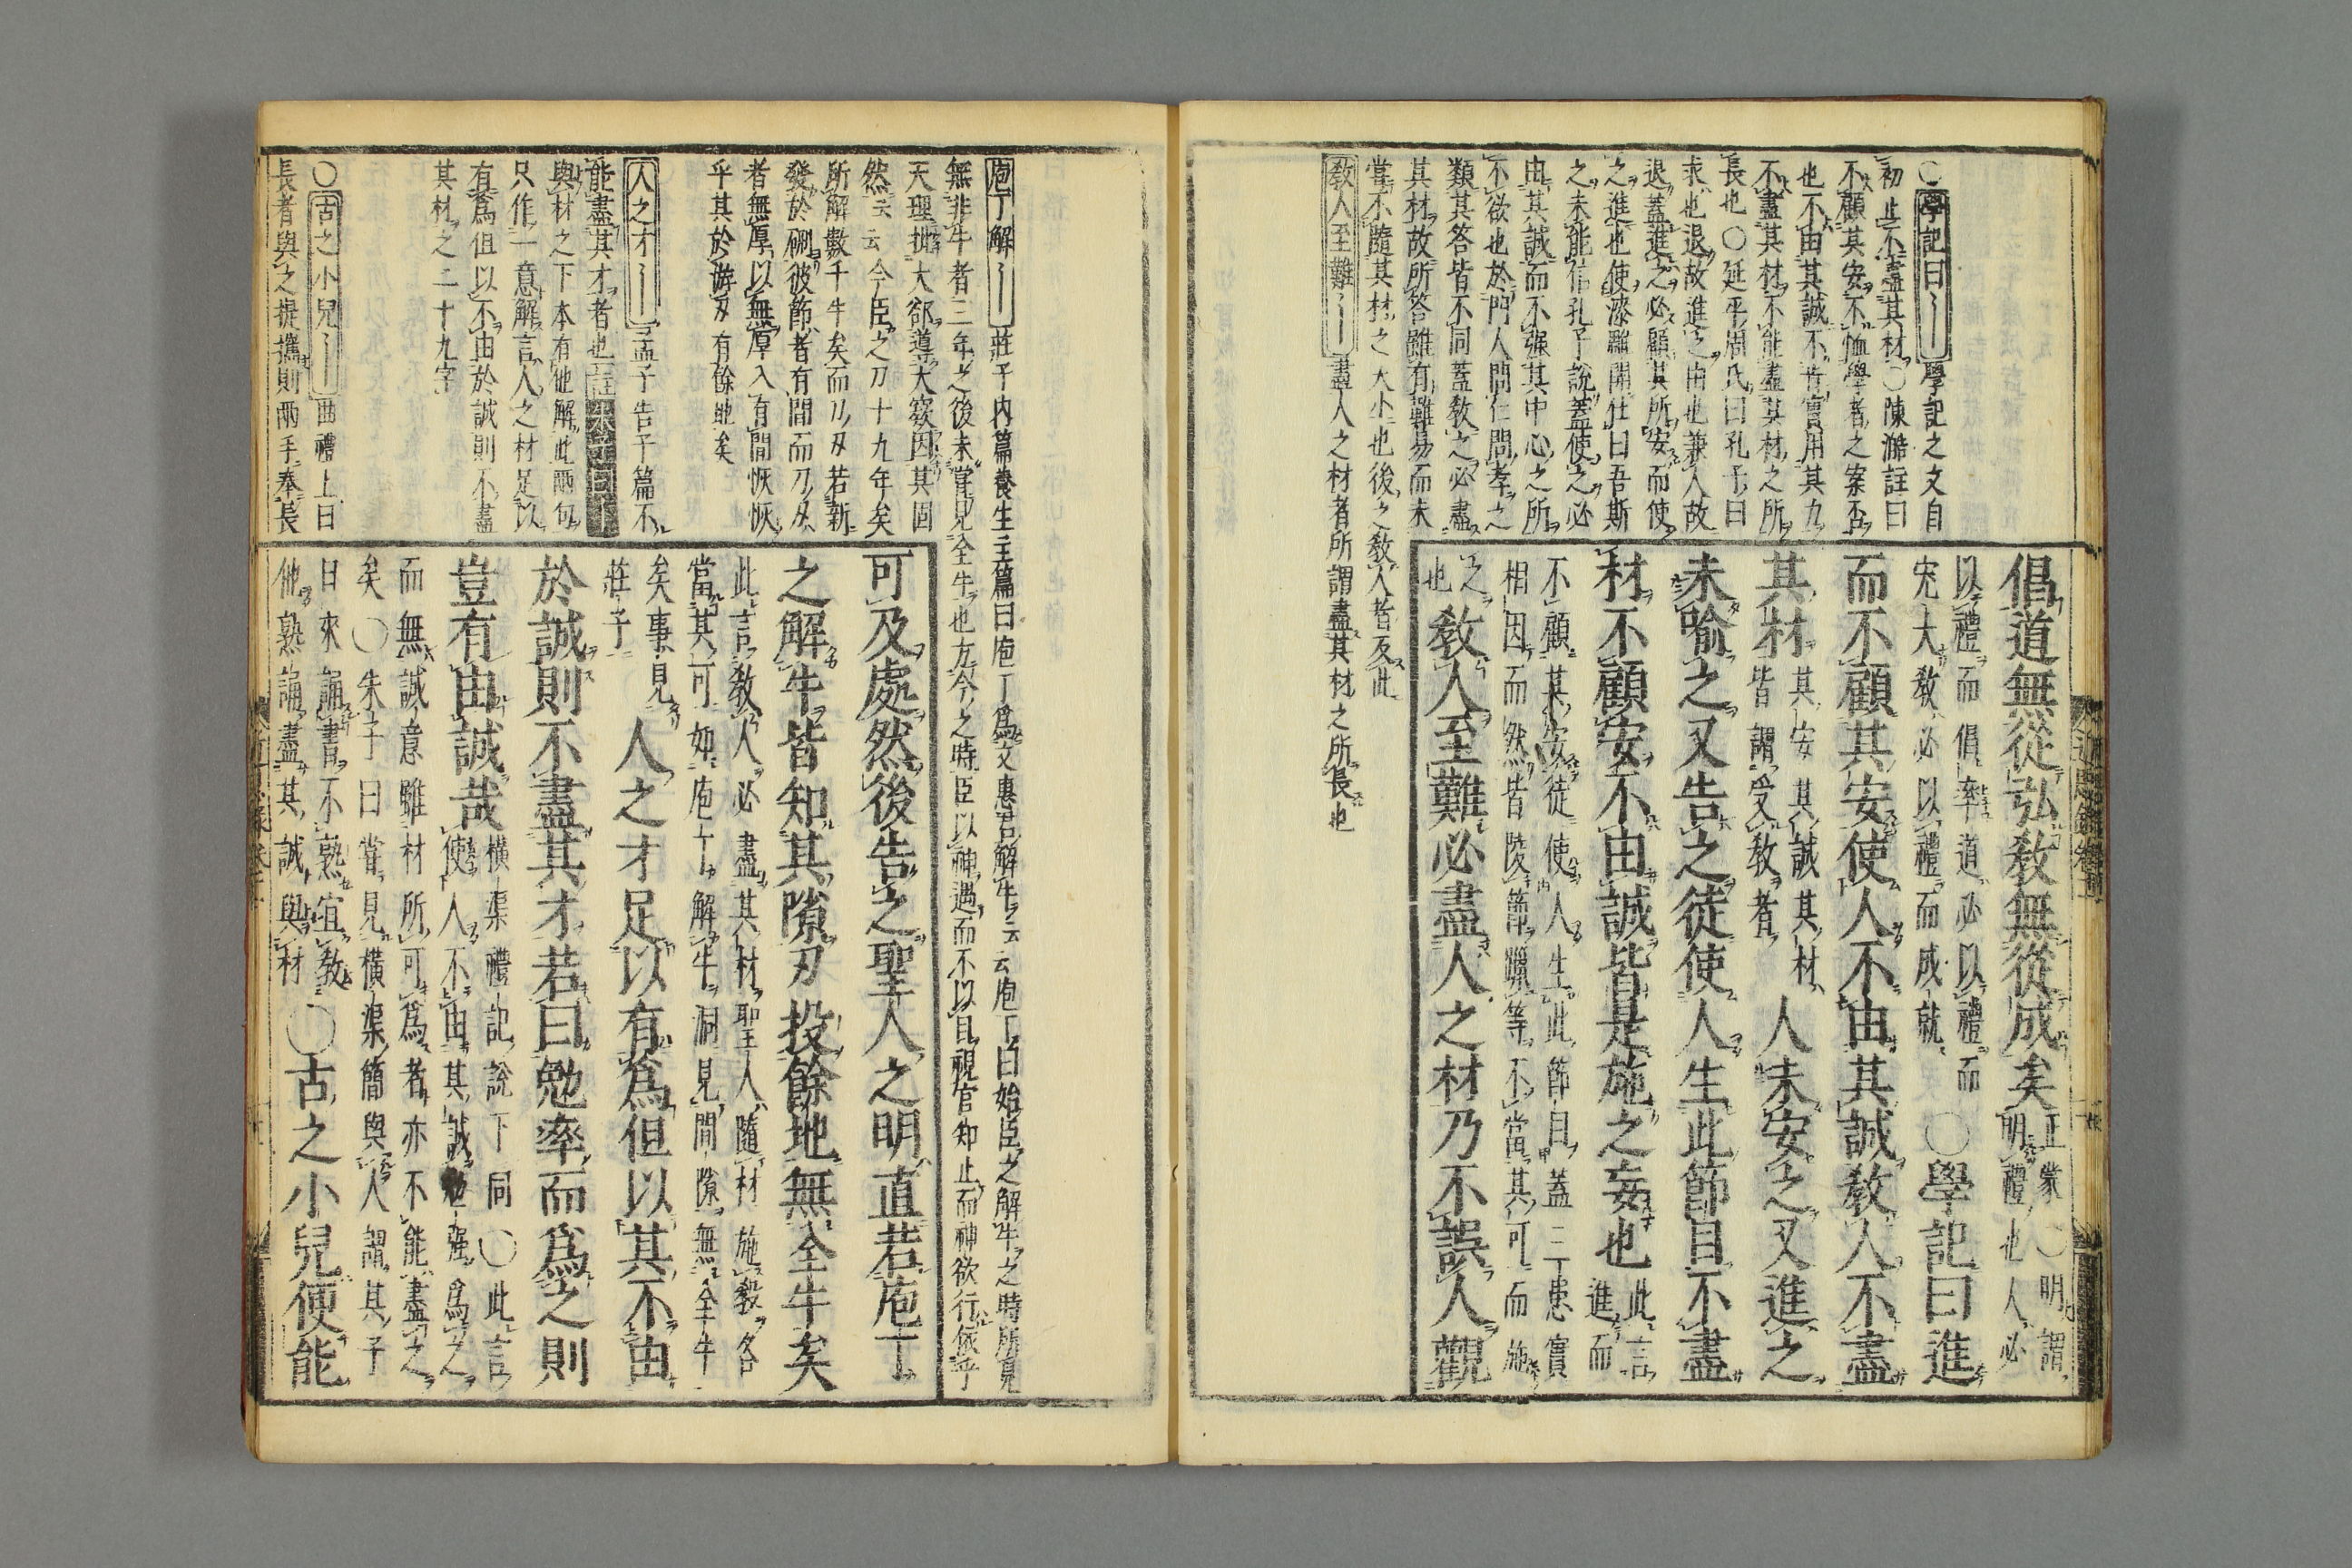 ○學記曰〡學記之文自
初止不盡其材○陳澔註曰
不顧其安不恤學者之案否
也不由其誠不肯實用其力
不盡其材不能盡其材之所
長也○延平周氏曰孔子曰
求也退故進之由也兼人故
退蓋進之必顧其所安而使
之進也使漆雕開仕曰吾斯
之未能信孔子說蓋使之必
由其誠而不強其中心之所
不欲也於門人問仁問孝之
類其答皆不同蓋教之必盡
其材故所答雖有難易而未
嘗不隨其材之大小也後之教人皆反此
教人至難〡盡人之材者所謂盡其材之所長也
倡道無從弘教無從成矣
正蒙○明謂
明禮也人必
以禮而倡率道必以禮而
宏大教必以禮而成就
○學記曰進
而不顧其安使人不由其誠教人不盡
其材
其安其誠其材
皆謂受教者
人未安之又進之
未喻之又告之徒使人生此節目不盡
材不顧安不由誠皆是施之妄也
此言
進而
不顧其安徒使人生此節目蓋三患實
相因而然皆陵節躐等不當其可而施
之
也
教人至難必盡人之材乃不誤人觀
庖丁解〡莊子內篇養生主篇曰庖丁爲文惠君解牛云云庖丁曰始臣之解牛之時所見
無非牛者三年之後未嘗見全牛也方今之時臣以神遇而不以目視官知止而神欲行依乎
天理批大郤導大窾因其固
然云云今臣之刀十九年矣
所解數千牛矣而刀刃若新
發於硎彼節者有間而刀刃
者無厚以無厚入有間恢恢
乎其於游刃有餘地矣
人之才〡孟子告子篇不
能盡其才者也註朱子曰〡
與材之下本有他解此兩句
只作一意解言人之材足以
有爲但以不由於誠則不盡
其材之二十九字
○古之小兒〡曲禮上曰
長者與之提攜則兩手奉長
可及處然後告之聖人之明直若庖丁
之解牛皆知其隙刃投餘地無全牛矣
此言教人必盡其材聖人隨材施教各
當其可如庖丁解牛洞見間隙無全牛
矣事見
莊子
人之才足以有爲但以其不由
於誠則不盡其才若曰勉率而爲之則
豈有由誠哉
橫渠禮記說下同○此言
使人不由其誠勉強爲之
而無誠意雖材所可爲者亦不能盡之
矣○朱子曰嘗見橫渠簡與人謂其子
日來誦書不熟宜教
他熟誦盡其誠與材
○古之小兒便能